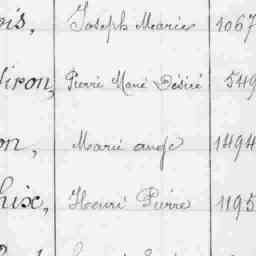 ois, Joseph Marie 1067
Pierre Mané Désiré 549
on, Marie ange 1494
Henri Pierre 1195